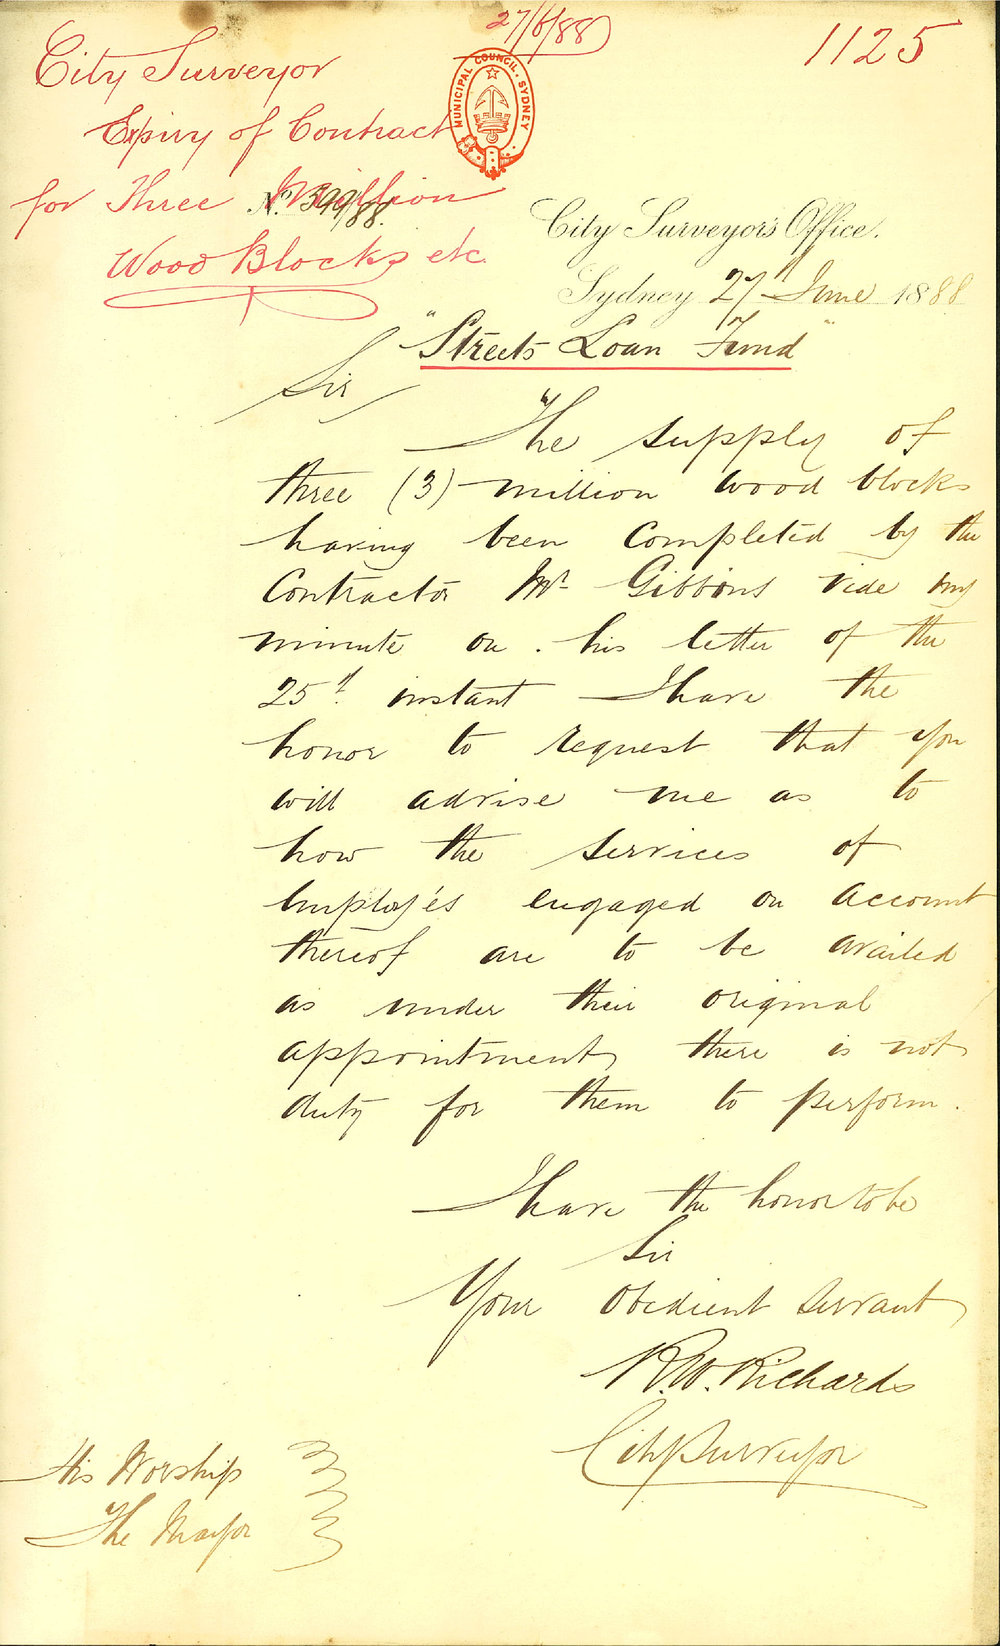 27/6/88
1125
City Surveyor
Expiry of Contract
for Three Million
Wood Blocks etc
MUNICIPAL COUNCIL. SYDNEY
No. 399/88.
City Surveyor's Office.
Sydney 27th June 1888
"Streets Loan Fund"
Sir
The supply of
three (3) million wood blocks
having been completed by the
Contractor Mr Gibbons vide my
minute on his letter of the
25th instant I have the
honor to request that you
will advise me as to
how the services of
employés engaged on account
thereof are to be availed
as under their original
appointment there is not
duty for them to perform.
I have the honor to be
Sir
Your Obedient Servant
R.W. Richards
City Surveyor
His Worship
The Mayor